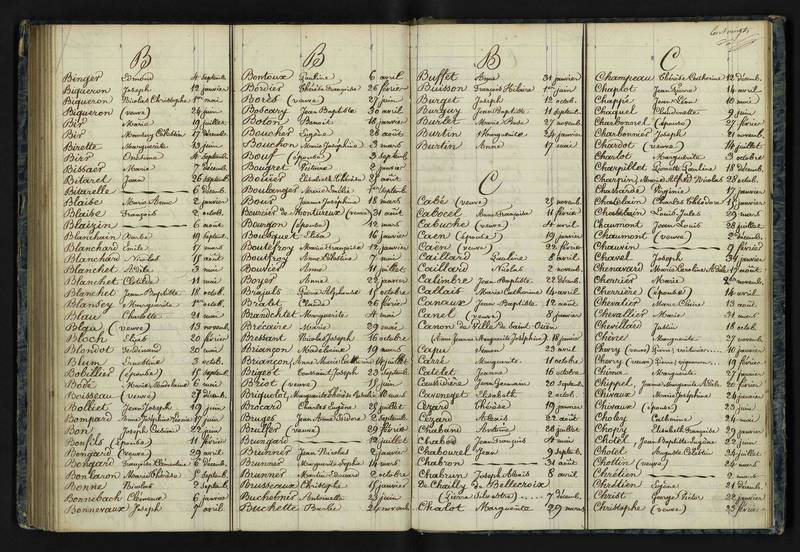 B
Binger Edmond 4 Septemb.
Biqueron Joseph 12 janvier
Biqueron Nicolas Christophe 1er mai
Biqueron (veuve) 24 juin
Bir Marie 4 juillet
Bir 17 décemb.
Birette Marguerite 23 juin
Birr Onésime 4 Septemb.
Bissaer Marie 7 décemb.
Bitaret Jean 26 septemb.
Bitarelle 6 décemb.
Blaise Marie Anne 2 janvier
Blaise François 2 octob.
Blaizin 6 août
Blanchain 19 septemb.
Blanchard Emile 17 mars
Blanchard Nicolas 15 août
Blanchet Adèle 3 mai
Blanchet Clotilde 11 mai
Blanchet Jean Baptiste 18 octob.
Blandey Marguerite 1er octob.
Blau Charlotte 21 mai
Blau (veuve) 13 novemb.
Bloch Elise 20 février
Blondot Ferdinand 20 mai
Blum Ernestine 3 octob.
Bobillier (épouse) 15 septemb.
Bodé Marie Madelaine 6 mai
Boisseau (veuve) 27 décemb.
Bolliet Jean Joseph 19 juin
Bompard 27 juin
Bon Joseph 22 juin
Bonfils (épouse) 11 février
Bongard (veuve) 29 avril
Bongard Françoise Clémentine 6 décemb.
Bonlaron Marie Thérèse 8 Septemb.
Bonne Nicolas 2 Septemb.
Bonnebach Clémence 6 janvier
Bonnevaux Joseph 7 avril
B
Bontoux Pauline 6 avril
Bordier Thérèse Françoise 26 février
Borés (veuve) 27 juin
Boscary Jean Baptiste 30 avril
Boton Benoit 18 janvier
Boucher Eugène 28 août
Bouchon Marie Joséphine 3 mars
Bouf (épouse) 3 septemb.
Bougret Victoire 2 janvier
Boulier Elisabeth 25 août
Boulanger Marie Emilie 1er Septemb.
Bour Jeanne Joséphine 18 mars
Bourcier de Montureux (veuve) 31 août
Bourgon (épouse) 12 mars
Bousiquet Victor 16 janvier
Boutefroy Marie Françoise 12 janvier
Boutfroy Anne Célestine 7 mai
Bouvier Anne 11 juillet
Boyer Anne 22 janvier
Brajuls Pierre Alphonse 1er octobre
Bralet Claude 26 février
Brandchlet Marguerite 4 mai
Brécaire Marie 29 mai
Bressant Nicolas Joseph 16 octobre
Briançon Madeleine 19 mars
Briançon, Anne Marie Catherine 29 juillet
Brizot Constant Joseph 23 Septemb.
Briot (veuve) 15 juin
Briquelot, Marguerite Thérèse 10 mars
Brocard Charles Eugène 25 juillet
Bruges Jean Anne Isidore 2 Septemb.
Brulfer (veuve) 29 février
Brumgard 12 juillet
Brunner Jean Nicolas 2 janvier
Brunner Marguerite Sophie 14 mars
Brunner 2 octobre
Brusseaux Christophe 15 janvier
Buchobner Antoinette 23 juin
Buchette Barbe 24 novemb.
B
Buffet Anne 31 janvier
Buisson François Hilaire 1er juin
Burget Joseph 12 octob.
Burguy Jean Baptiste 11 septemb.
Burlet Marie Rose 27 novemb.
Burtin Marguerite 24 janvier
Burtin Anne 17 mai
C
Cabé (veuve) 25 novemb.
Cabocel Anne Françoise 11 février
Cabuche (veuve) 4 avril
Caen (épouse) 19 janvier
Caën (veuve) 22 février
Caillard Pauline 8 avril
Caillard Nicolas 2 novemb.
Calimbre Jean Baptiste 22 décemb.
Callais Marie Catherine 14 avril
Canaux Jean Baptiste 12 août
Canel (veuve) 8 janvier
Canon de Ville de Saint Ouën
(Anne Jeanne Marguerite Joséphine) 18 janvier
Capu Simon 23 avril
Caré Marguerite 11 octobre
Catelet Jeanne 16 octobre
Caussidière Jean Germain 20 septemb.
Caveneget Elisabeth 2 octob.
Cezard Thérèse 19 janvier
Cézard Alexis 22 août
Chabaud Antoine 26 juillet
Chabod Jean François 4 mai
Chabourel Jean 9 septemb.
Chabron 31 août
Chabrun Joseph Alexis 8 avril
De Chailly de Bellecroix
(Pierre Silvestre) 7 décemb.
Chalot Marguerite 29 mars
C
Champeau Thérèse Catherine 12 décemb.
Chaplot Jean Pierre 14 avril
Chappé Jean Léon 10 mai
Chaquel Claudinette 9 juin
Charbonnel (épouse) 27 février
Charbonnier Joseph 21 novemb.
Chardot (veuve) 14 juillet
Charlot Marguerite 3 octobre
Charpillet Léonette Pauline 18 décemb.
Charpin, Marie Alfred Nicolas 28 octob.
Chassarde Virginie 17 janvier
Chastelain Charles Théodore 18 janvier
Chastelain Louis Jules 29 mars
Chaumont Jean Louis 28 juillet
Chaumont (veuve) 2 décemb.
Chauvin 9 février
Chavel Joseph 31 janvier
Chenavard Marie Caroline Adèle 17 août
Cherrier Marie 2 novemb.
Cherrière (épouse) 14 avril
Chevalier Marie Claire 13 août
Chevallier Marie 31 mars
Chevillard Justin 18 octob.
Chèvre Marguerite 27 novemb.
Chevry (veuve) 10 janvier
Chevry (veuve) 1 février
Chima Marguerite 27 février
Chippel, Jeanne Marguerite Adèle 20 février
Chivaux Marie Joséphine 24 janvier
Chivaux (épouse) 23 juin
Choley Catherine 24 mai
Chopey Elisabeth Françoise 29 janvier
Chotel, Jean Baptiste Eugène 22 juin
Chotel Auguste Célestin 24 juillet
Chotlin (veuve) 14 février
Chrétien 2 mars
Chrétien Eugène 21 décemb.
Christ George Victor 22 janvier
Christophe (veuve) 23 février